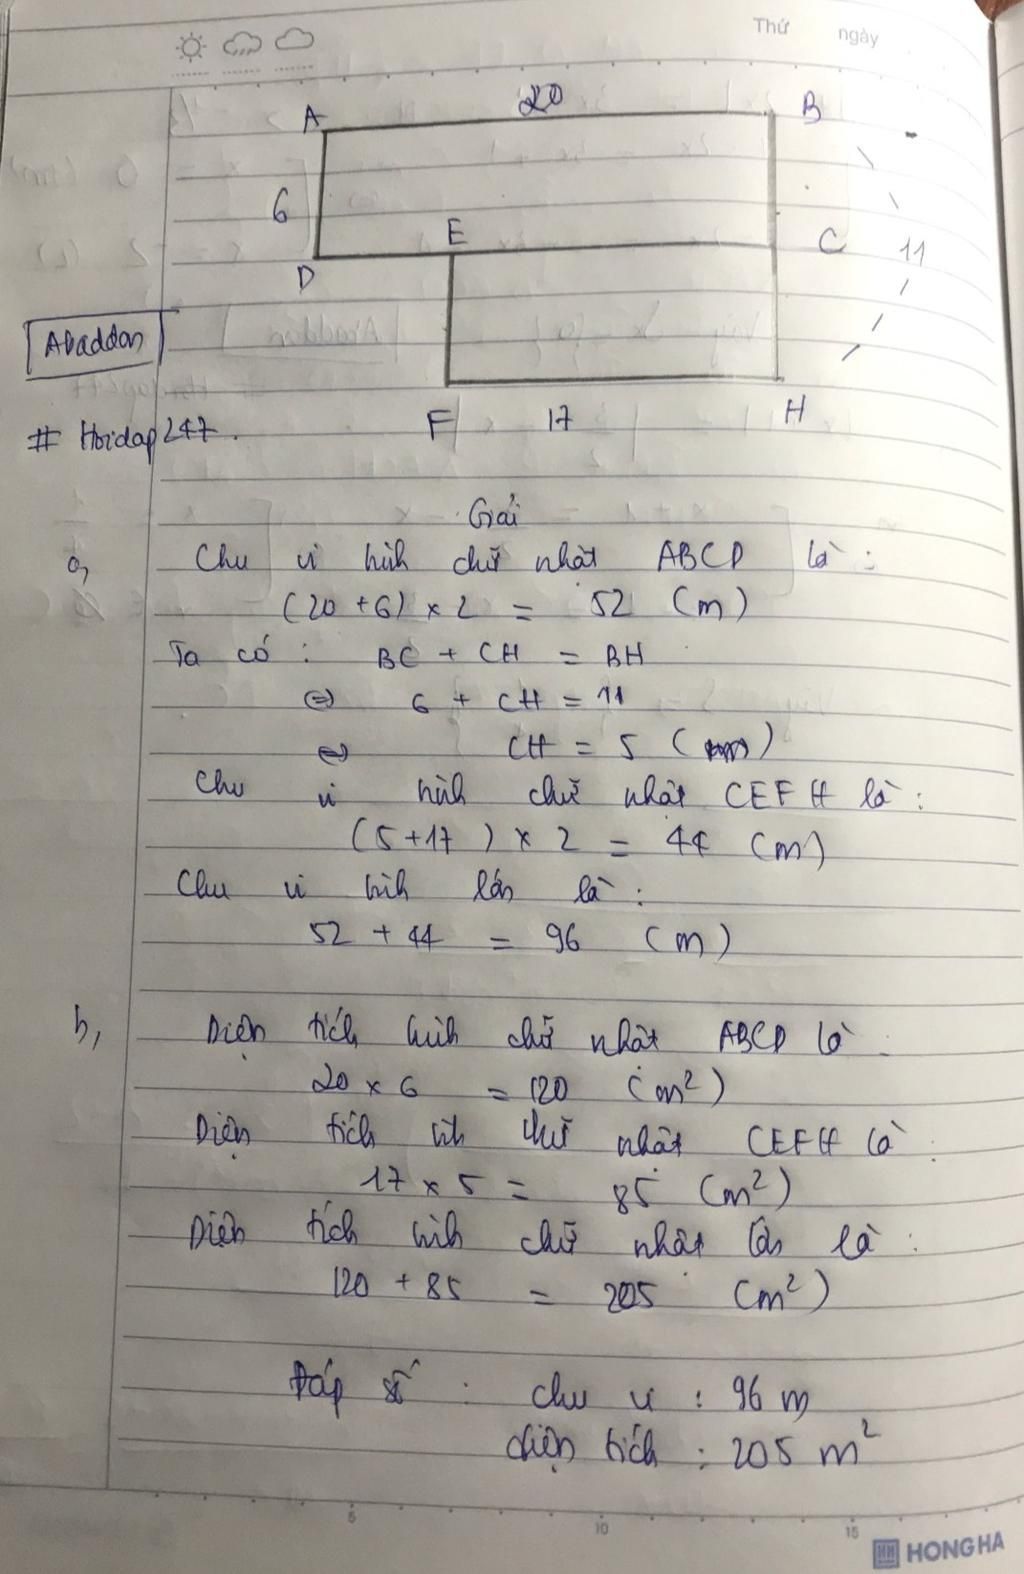 Thứ ngày
20
A B
6
E
C 11
D
Abaddon
F 17 H
# Hoidap247.
Giải
a, Chu vi hình chữ nhật ABCD là :
(20 + 6) x 2 = 52 (m)
Ta có : BC + CH = BH
⇔ 6 + CH = 11
⇔ CH = 5 (m)
Chu vi hình chữ nhật CEFH là :
(5 + 17 ) x 2 = 44 (m)
Chu vi hình lớn là :
52 + 44 = 96 (m)
b, Diện tích hình chữ nhật ABCD là :
20 x 6 = 120 (m²)
Diện tích hình chữ nhật CEFH là :
17 x 5 = 85 (m²)
Diện tích hình chữ nhật lớn là :
120 + 85 = 205 (m²)
Đáp số : chu vi : 96 m
diện tích : 205 m²
5 10 15
HONG HA